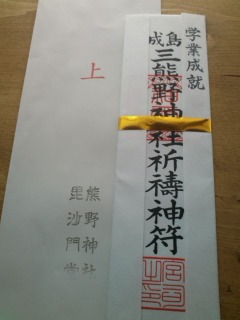 学業成就
成島
三熊野神社祈禱神符
宮司之印
上
熊野神社
毘沙門堂